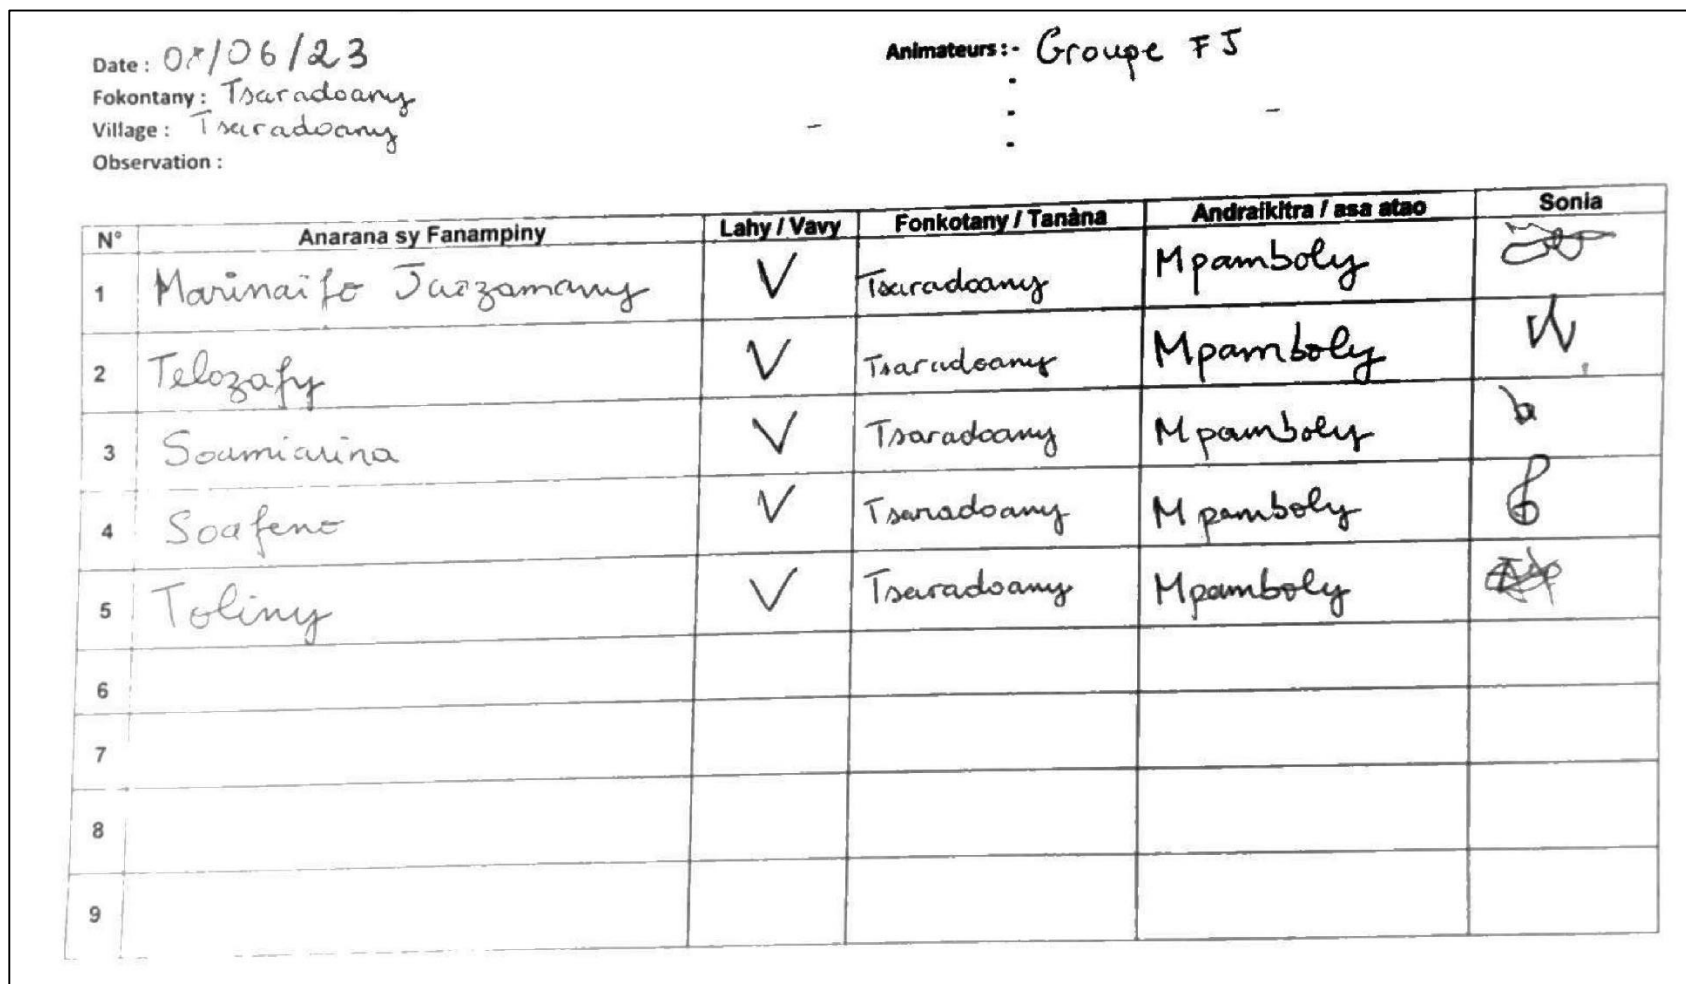 Date : 0 /06/23
Animateurs :- Groupe FJ
Fokontany : Tsaradoany
Village : Tsaradoany
Observation :
N° Anarana sy Fanampiny Lahy / Vavy Fonkotany / Tanàna Andraikitra / asa atao Sonia
1 Marinaïfo V Tsaradoany Mpamboly
2 Telozafy V Tsaradoany Mpamboly
3 Soamiarina V Tsaradoany Mpamboly
4 Soafeno V Tsaradoany Mpamboly
5 Toliny V Tsaradoany Mpamboly
6
7
8
9